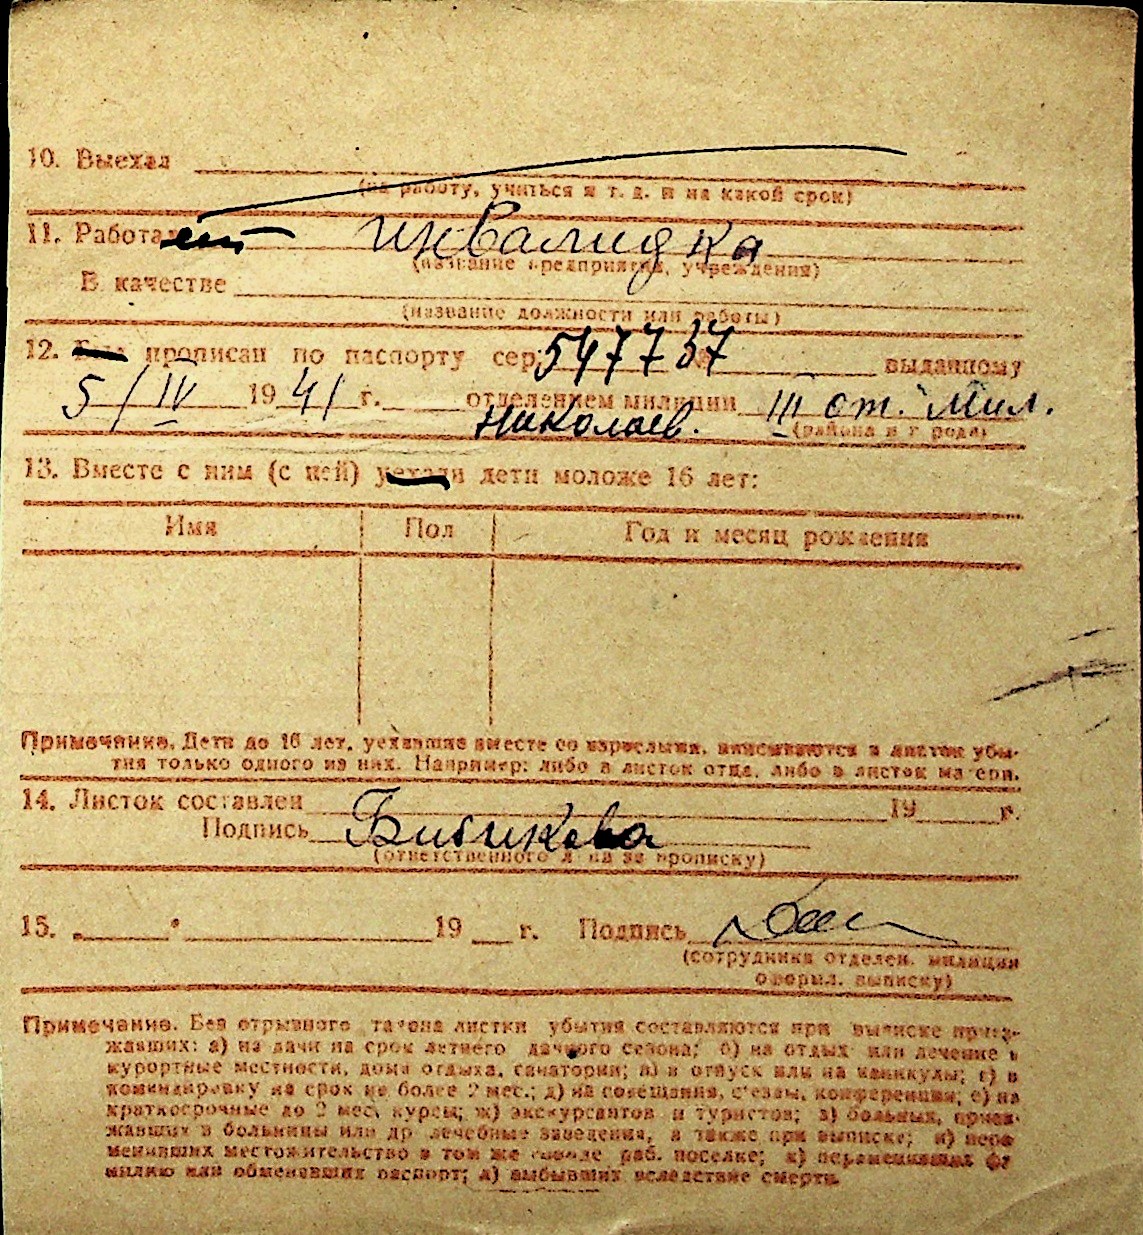 10. Выехал
(на работу, учиться и т. д. и на какой срок)
11. Работает инвалидка
(название предприятия, учреждения)
В качестве
(название должности или работы)
12. Был прописан по паспорту сер. 547737 выданному
5/IV 1941 г. отделением милиции III от. Мил.
Николаев. (района и города)
13. Вместе с ним (с ней) уехали дети моложе 16 лет:
Имя Пол Год и месяц рождения
Примечание. Дети до 16 лет, уехавшие вместе со взрослыми, вписываются в листок убы-
тия только одного из них. Например: либо в листок отца, либо в листок матери.
14. Листок составлен 19 г.
Подпись Бибикова
(ответственного л на за прописку)
15. „ “ 19 г. Подпись
(сотрудника отделен. милиции
оформл. выписку)
Примечание. Без отрывного талона листки убытия составляются при выписке приез-
жавших: а) на дачи на срок летнего дачного сезона; б) на отдых или лечение в
курортные местности, дома отдыха, санатории; в) в отпуск или на каникулы; г) в
командировку на срок не более 2 мес.; д) на совещания, съезды, конференции; е) на
краткосрочные до 2 мес. курсы; ж) экскурсантов и туристов; з) больных, приез-
жавших в больницы или др лечебные заведения, а также при выписке; и) пере
менивших местожительство в том же городе раб. поселке; к) переменивших фа
милию или обменявших паспорт; л) выбывших вследствие смерти.